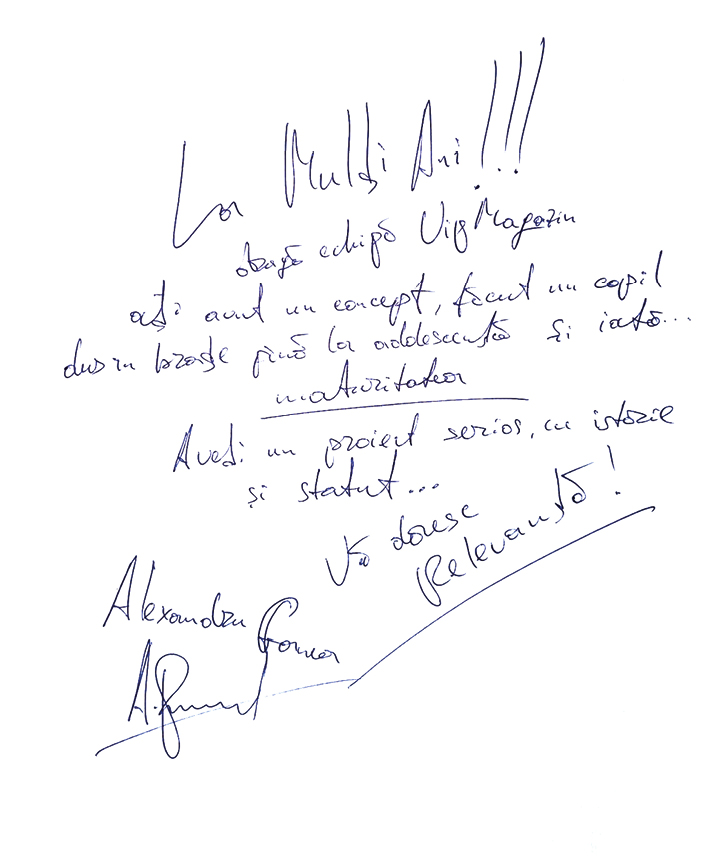 La Mulți Ani!!!
dragă echipă Vip Magazin
ați avut un concept, făcut un copil
dus în brațe până la adolescență și iată...
maturitatea
Aveți un proiect serios, cu istorie
și statut...
Vă doresc
Relevanță!
Alexandru